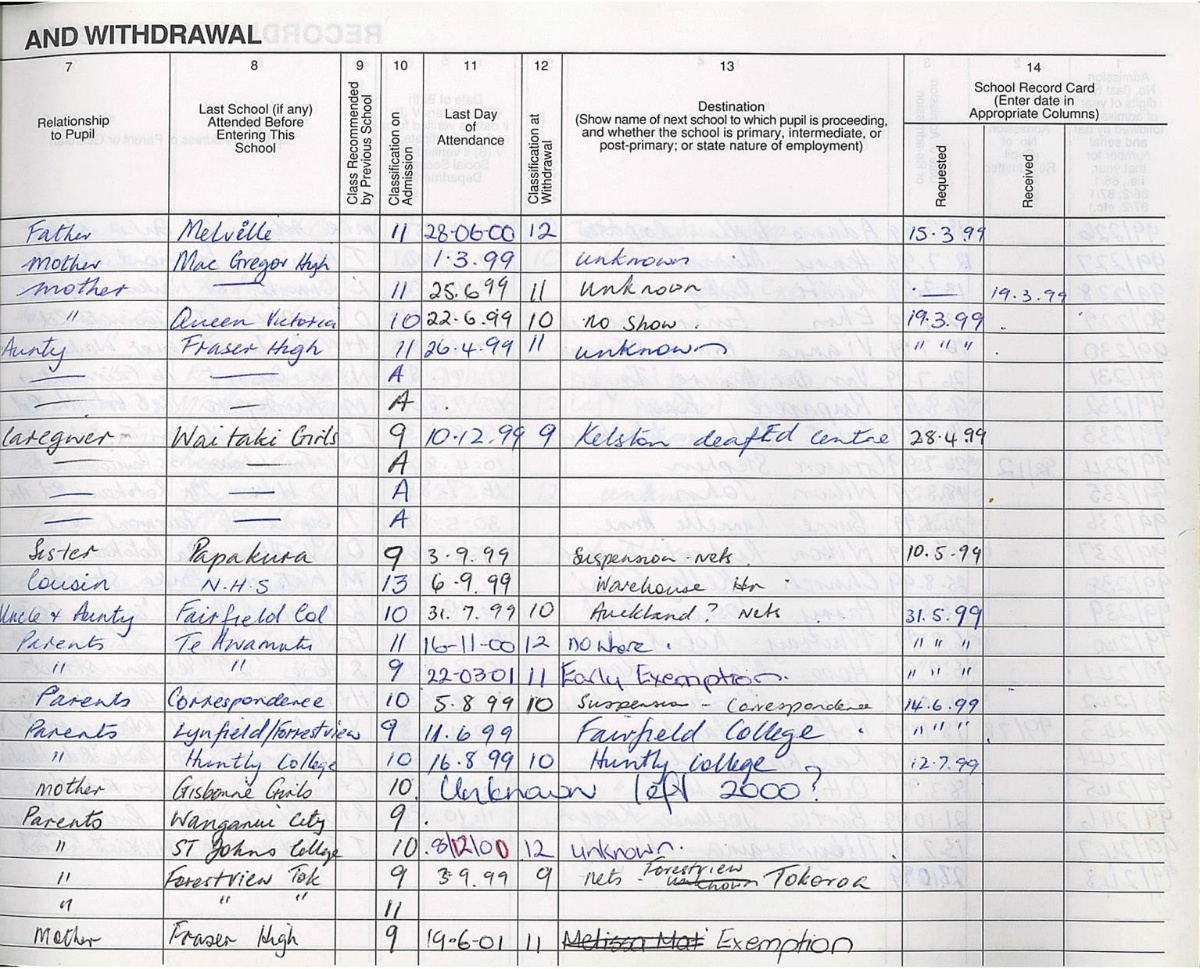 AND WITHDRAWAL
7 8 9 10 11 12 13 14
Relationship to Pupil
Last School (if any) Attended Before Entering This School
Class Recommended by Previous School
Classification on Admission
Last Day of Attendance
Classification at Withdrawal
Destination
(Show name of next school to which pupil is proceeding, and whether the school is primary, intermediate, or post-primary; or state nature of employment)
School Record Card (Enter date in Appropriate Columns)
Requested
Received
Father Melville 11 28-06-00 12 15.3.99
mother Mac Gregor High 1.3.99 unknown
mother — 11 25.6.99 11 unknown — 19.3.99
" Queen Victoria 10 22-6.99 10 no show. 19.3.99
Aunty Fraser High 11 26.4.99 11 unknown " " "
— — A
— — A
Caregiver - Waitaki Girls 9 10.12.99 9 Kelston deaf Ed centre 28.4.99
— — A
— — A
— — A
Sister Papakura 9 3.9.99 Suspension - nets 10.5.99
Cousin N.H.S 13 6.9.99 Warehouse Hn
Uncle & Aunty Fairfield Col 10 31.7.99 10 Auckland? Nets 31.5.99
Parents Te Awamutu 11 16-11-00 12 nowhere. " " "
" " 9 22-03-01 11 Early Exemption. " " "
Parents Correspondence 10 5.8 99 10 Suspension - Correspondence 14.6.99
Parents Lynfield/Forrestview 9 11.6 99 Fairfield College " " "
" Huntly College 10 16.8 99 10 Huntly College 12.7.99
mother Gisborne Girls 10 Unknown left 2000?
Parents Wanganui City 9
" ST Johns College 10 8/12/00 12 unknown.
" Forestview Tok 9 3 9.99 9 nets - Forestview unknown Tokoroa
" " " 11
Mother Fraser High 9 19-6-01 11 Exemption